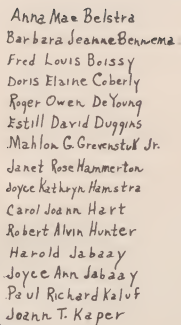 Anna Mae Belstra
Barbara Jeanne Bennema
Fred Louis Boissy
Doris Elaine Coberly
Roger Owen DeYoung
Estill David Duggins
Mahlon G. Grevenstuk Jr.
Janet Rose Hammerton
Joyce Kathryn Hamstra
Carol Joann Hart
Robert Alvin Hunter
Harold Jabaay
Joyce Ann Jabaay
Paul Richard Kaluf
Joann T. Kaper